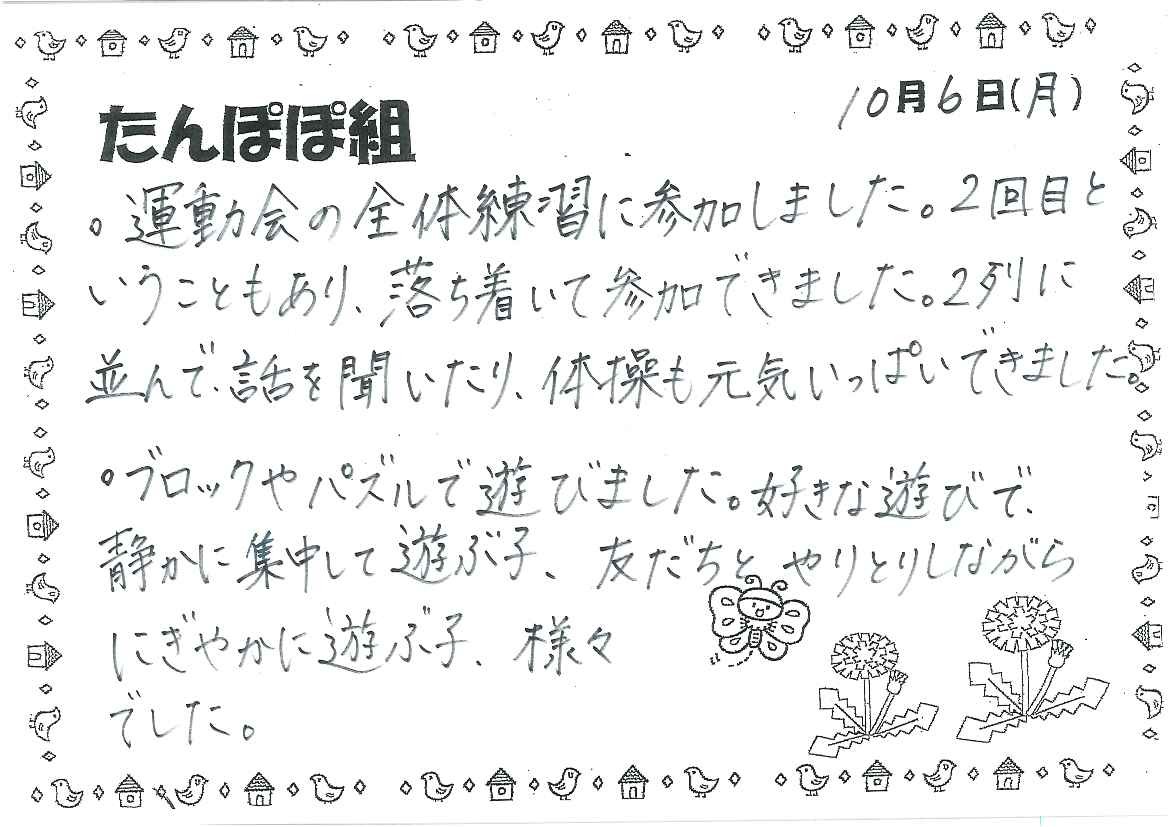 たんぽぽ組
10月6日(月)
。運動会の全体練習に参加しました。2回目と
いうこともあり、落ち着いて参加できました。2列に
並んで、話を聞いたり、体操も元気いっぱいできました。
。ブロックやパズルで遊びました。好きな遊びで、
静かに集中して遊ぶ子、友だちとやりとりしながら
にぎやかに遊ぶ子、様々
でした。